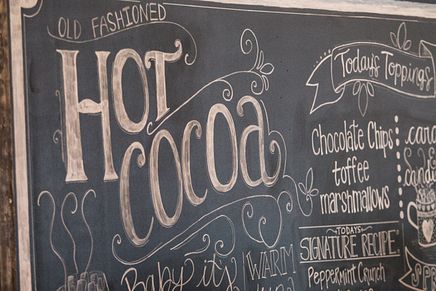 OLD FASHIONED
HOT
COCOA
Baby it's
WARM
Today's Toppings
Chocolate Chips
toffee
marshmallows
TODAYS
SIGNATURE RECIPE
Peppermint Crunch